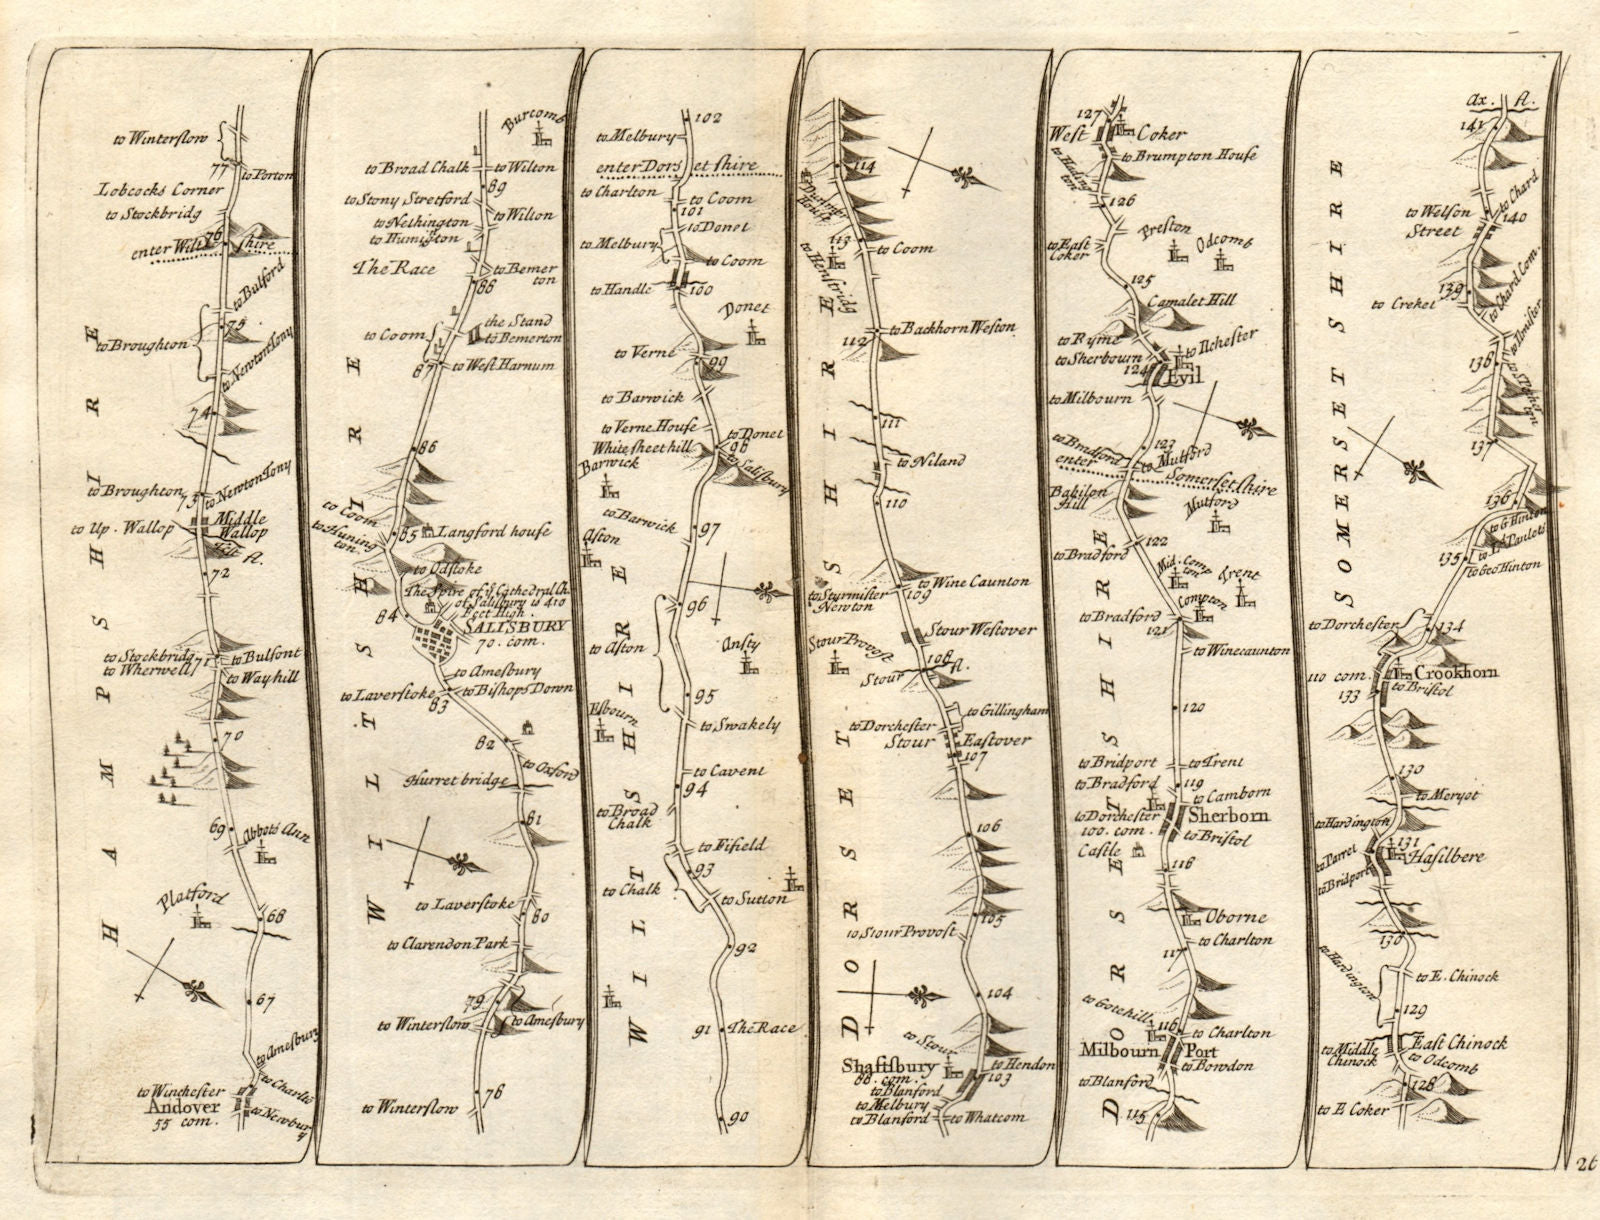 HAMPSHIRE
to Winterslow
77
to Porton
Lobcocks Corner
to Stockbridg
76
enter Wiltshire
to Bulford
75
to Broughton
to Newton Tony
74
to Broughton
to Newton Tony
73
to Up. Wallop
Middle
Wallop
fl.
72
to Stockbridg
to Bulfont
to Wherwell
71
to Wayhill
70
69
Abbots Ann
Platford
68
67
to Amesbury
to Winchester
to Charlto
Andover
55 com.
to Newbury
WILTSHIRE
Burcomb
to Broad Chalk
to Wilton
89
to Stony Stretford
to Wilton
to Nethington
to Humigton
The Race
to Bemer
ton
88
the Stand
to Coom
to Bemerton
87
to West Harnum
86
to Coom
to Huning
ton
85
Langford house
to Odstoke
The Spire of ye Cathedral Ch.
of Salisbury is 410
Feet High.
84
SALISBURY
70. com.
to Amesbury
to Laverstoke
to Bishops Down
83
82
to Oxford
Hurret bridge
81
to Laverstoke
80
to Clarendon Park
79
to Winterslow
to Amesbury
78
to Winterslow
WILTSHIRE
102
to Melbury
enter Dorsetshire
to Charlton
to Coom
101
to Donet
to Melbury
to Coom
to Handle
100
Donet
to Verne
99
to Barwick
to Verne House
to Donet
White sheet hill
98
to Salisbury
Barwick
to Barwick
97
Aston
96
to Aston
Ansty
95
Esbourn
to Swakely
to Cavent
94
to Broad
Chalk
to Fifield
93
to Chalk
to Sutton
92
91
The Race
90
DORSETSHIRE
114
House
113
to Coom
to Henstridg
to Backhorn Weston
112
111
to Niland
110
to Wine Caunton
to Sturmister
Newton
109
Stour Westover
Stour Provost
108
fl.
Stour
to Gillingham
to Dorchester
Stour
Eastover
107
106
105
to Stour Provost
104
to Stour
Shaftsbury
to Hendon
86. com.
103
to Blanford
to Melbury
to Blanford
to Whatcom
DORSETSHIRE
127
West
Coker
to Brumpton House
to Hading
ton
126
to East
Coker
Preston
Odcomb
125
Camalet Hill
to Ryme
to Sherbourn
to Ilchester
124
Evil
to Milbourn
123
to Bradford
to Mutford
enter
Somersetshire
Babilon
Hill
Mutford
122
to Bradford
Mid. Comp
ton
Trent
Compton
to Bradford
121
to Winecaunton
120
to Bridport
to Trent
to Bradford
119
to Camborn
to Dorchester
Sherborn
100. com.
to Bristol
Castle
118
Oborne
to Charlton
117
to Gotehill
116
to Charlton
Milbourn
Port
to Bowdon
to Blanford
115
SOMERSETSHIRE
Ax. fl.
141
to Chard
to Welson
Street
140
139
to Chard Com.
to Creket
to Ilmister
138
137
136
to G Hinton
to Ld Paulets
135
to Geo Hinton
to Dorchester
134
110 com.
Crookhorn
to Bristol
133
130
to Meryet
to Hardington
131
Hasilbere
to Parret
to Bridport
130
to Hardington
to E. Chinock
129
East Chinock
to Middle
Chinock
to Odcomb
128
to E Coker
26